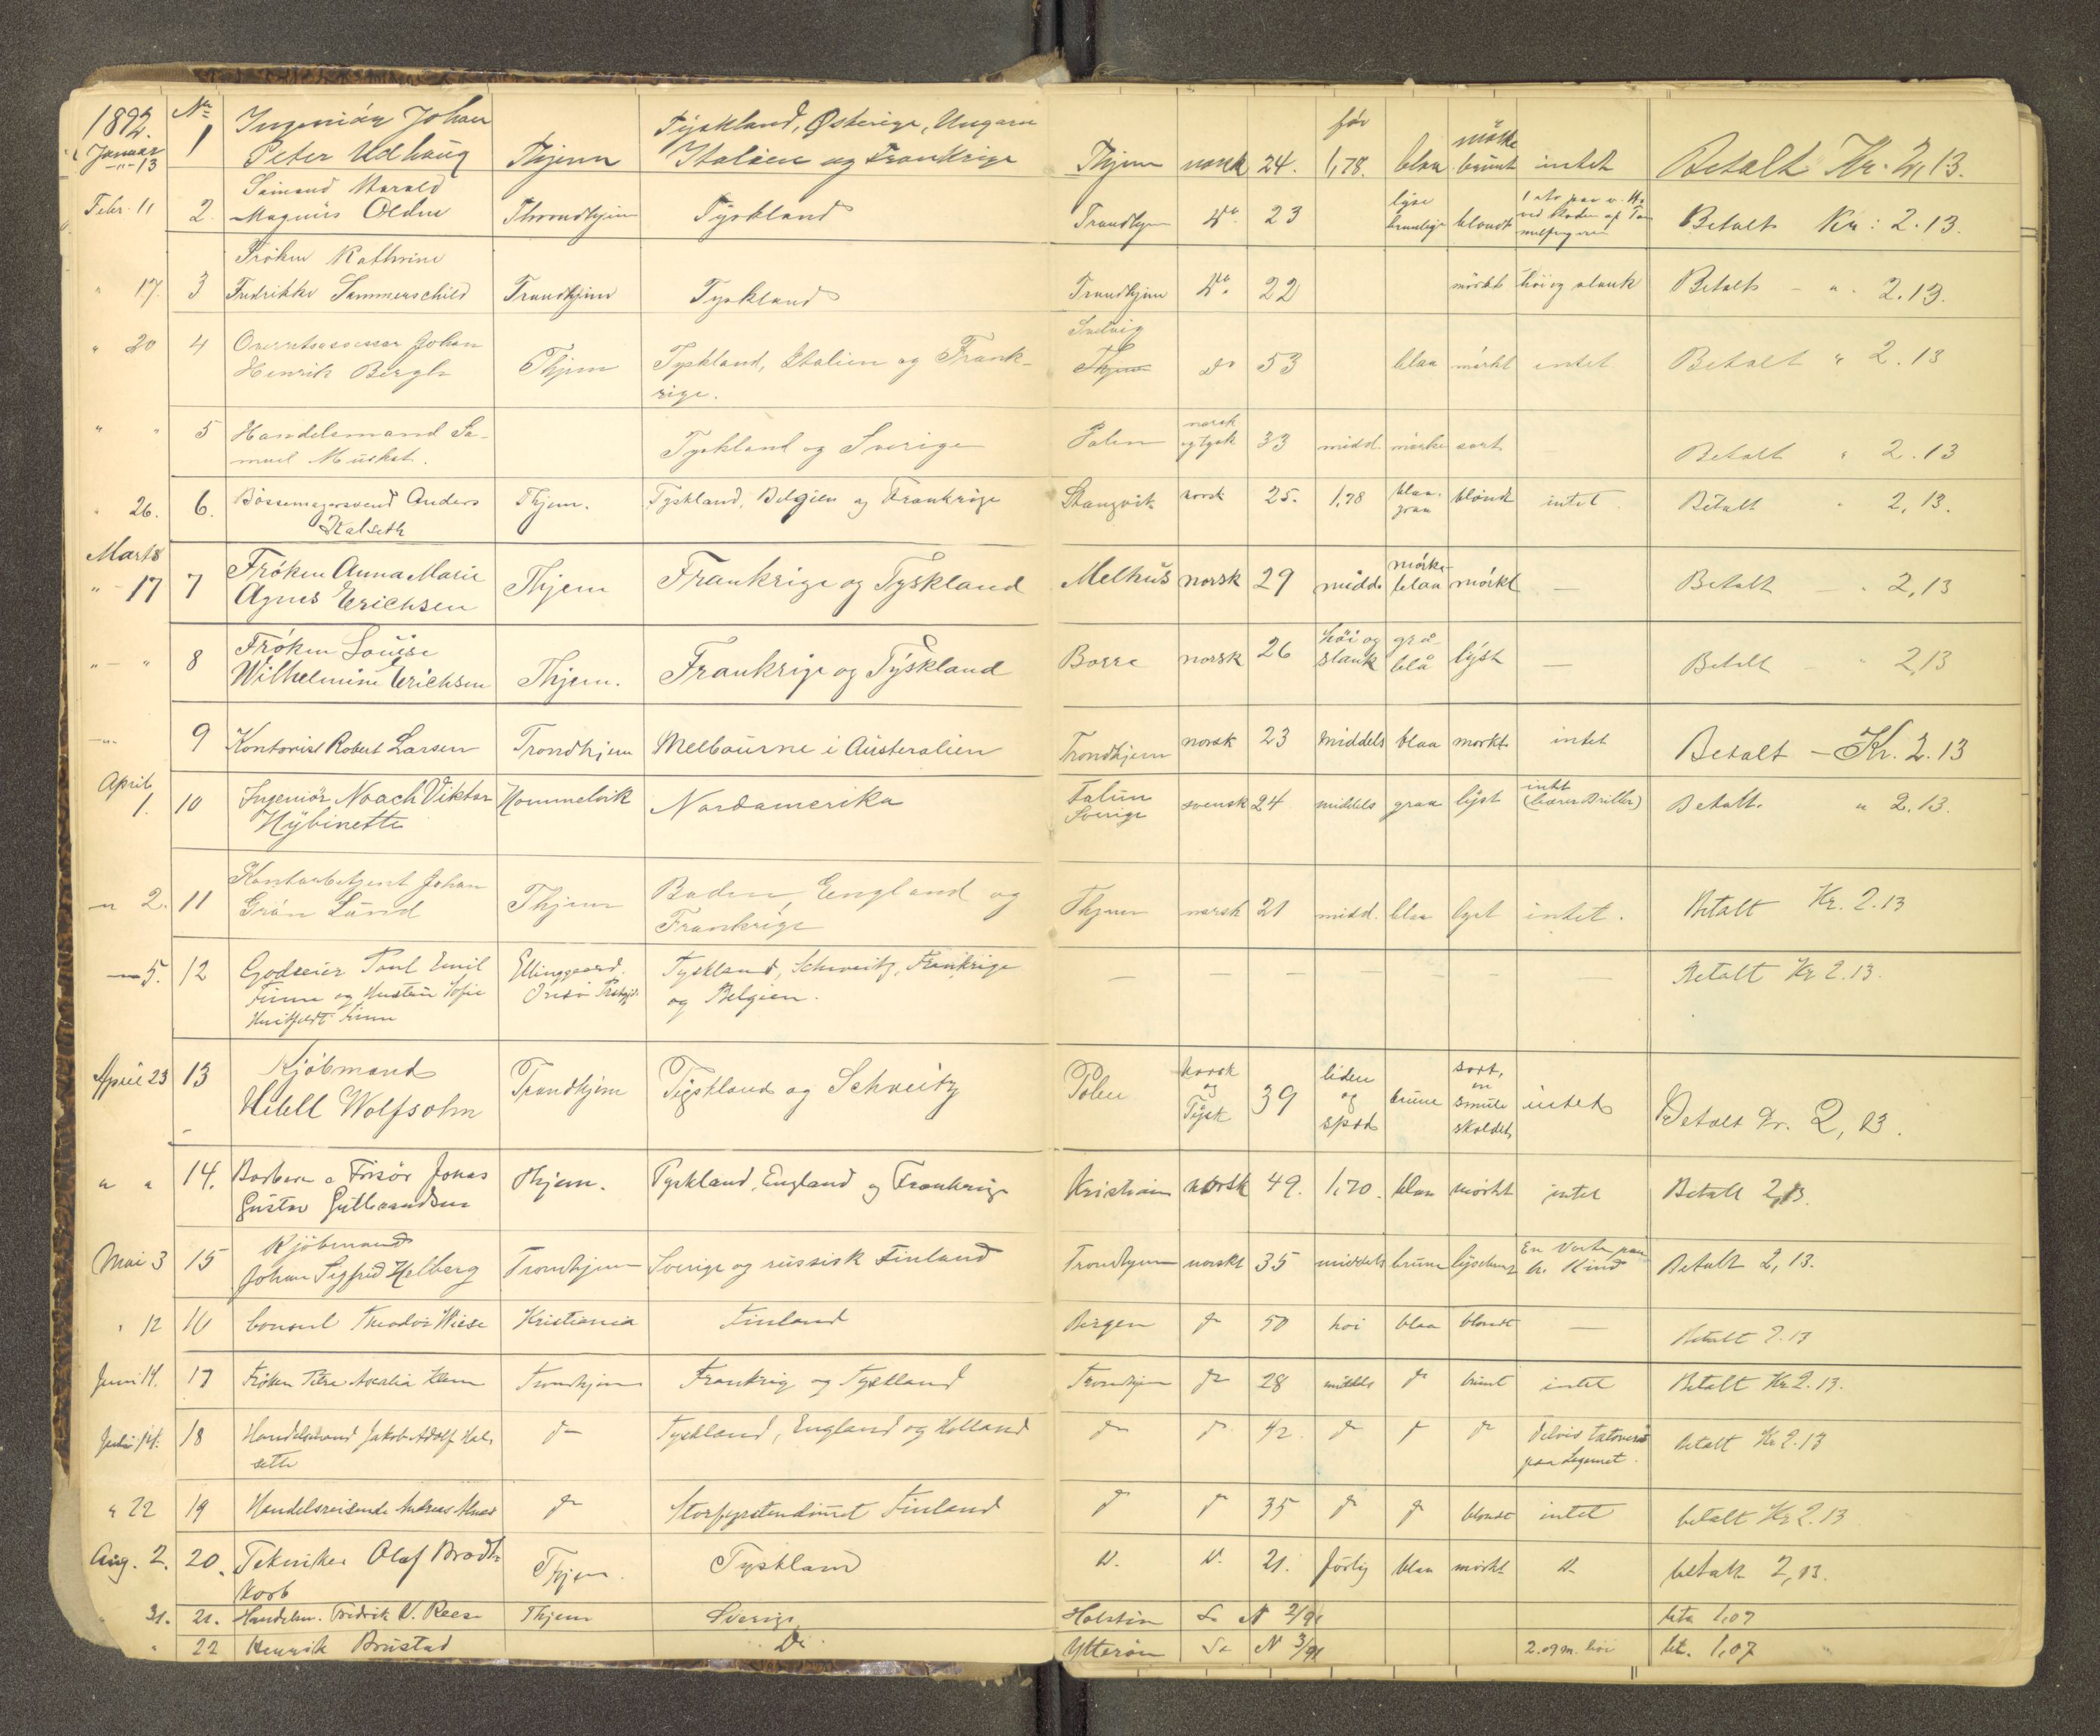 1892. No Ingeniör Johan Tyskland, Østerige, Ungarn før mörke
Januar 13 1 Peter Udhaug Thjem Italien og Frankrige Thjem norsk 24. 1,78. blaa brunt intet Betalt Kr. 2,13.
Harald lyse
Febr. 11 2. Magnus Olden Throndhjem Tyskland Trondhjem Do 23 brunlige blondt Betalt Kr: 2.13.
Fröken Kathrine
" 17. 3 Fredrikke Sommerschild Trondhjem Tyskland Trondhjem Do 22 mörkt höi og slank Betalt - " 2.13.
" 20 4 Overretsassessor Johan Selvig
Henrik Bergh Thjem Tyskland, Italien og Frank- Thjem do 53 blaa mörkt intet Betalt " 2.13
rige.
" " 5 Handelsmand Sa- norsk
muel Muskat. Tyskland og Sverige Polen og tysk 33 midd. mörke sort — Betalt " 2.13
" 26. 6. Bössemagersvend Anders Thjem. Tyskland, Belgien og Frankrige Stangvik norsk 25. 1,78 blaa- blond intet Betalt " 2,13.
Kalseth graa
Marts
" - 17 7 Fröken Anna Marie mörke-
Agnes Erichsen Thjem Frankrige og Tyskland Melhus norsk 29 midd. blaa mörkt — Betalt — " 2,13
"—" 8 Fröken Louise höi og grå-
Wilhelmine Erichsen Thjem. Frankrige og Tyskland Borre norsk 26 slank blå lyst — Betalt — " 2,13
—"— 9 Kontorist Robert Larsen Trondhjem Melbourne i Australien Trondhjem norsk 23 middels blaa mörkt intet Betalt — Kr. 2.13
April intet
1. 10 Ingeniör Noach Viktor Hommelvik Nordamerika Falun svensk 24 middels graa lyst (bærer Briller) Betalt. " 2.13.
Hybinette Sverige
— " 2. 11 Kontorbetjent Johan Baden, England og
Grön Lund Thjem Frankrige Thjem norsk 21 midd. blaa lyst intet. Betalt Kr. 2.13
— " 5. 12 Godseier Paul Emil Ellinggaard. Tyskland, Schweitz, Frankrige — — — — — — — Betalt Kr 2.13.
Finne og Hustru Sofie og Belgien.
Huitfeldt Finne
April 23 13 Kjöbmand norsk liden sort,
Trondhjem Tyskland og Schveitz Polen og 39 og brune en intet
Wolfsohn Tysk spæd smule Betalt Kr. 2,13.
skaldet
" " 14. Barber & Frisör Jonas Thjem. Tyskland, England og Frankrige Kristiania norsk 49. 1,70. blaa mörkt intet Betalt 2,13.
Gustav Gulbrandsen
Mai 3 15 Kjöbmand En Vorte paa
Johan Sigfred Helberg Trondhjem Sverige og russisk Finland Trondhjem norsk 35 middels brune lysebrunt h. Kind Betalt 2,13.
" 12 16 Consul Theodor Wiese Kristiania Finland Bergen do 50 höi blaa blondt — Betalt 2.13
Juni 14. 17 Fröken Petra Klem Trondhjem Frankrig og Tyskland Trondhjem do 28 middels do brunt intet Betalt Kr 2.13.
Juli 14. 18 Handelsmand Jakob Adolf Hal- do Tyskland, England og Holland do do 42 do do do delvis tatoveret Betalt Kr 2.13
sette paa Legemet.
" 22 19 Handelsreisende Andreas do Storfyrstendömet Finland do do 35 do do blondt intet betalt Kr 2.13
Aug. 2. 20. Tekniker Olaf Brodt- Thjem. Tyskland D. D. 21. förlig blaa mörkt D. betalt 2,13.
korb
" 31. 21. Handelsm. Fredrik V. Reese Thjem Sverige Holstein Do N 2/91 bet. 1,07
" 22 Henrik Brustad Do. Ytterøen Do N 3/91 2.09 m. höi bet. 1,07